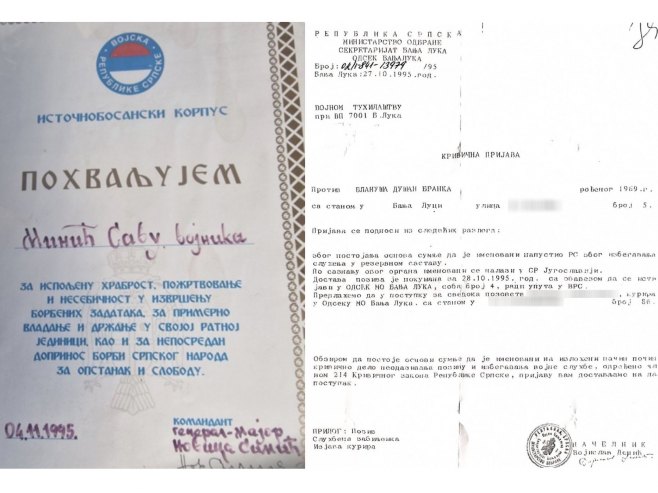 ВОЈСКА
РЕПУБЛИКЕ СРПСКЕ
ИСТОЧНОБОСАНСКИ КОРПУС
ПОХВАЉУЈЕМ
Минић Саву, војника
ЗА ИСПОЉЕНУ ХРАБРОСТ, ПОЖРТВОВАЊЕ
И НЕСЕБИЧНОСТ У ИЗВРШЕЊУ
БОРБЕНИХ ЗАДАТАКА, ЗА ПРИМЕРНО
ВЛАДАЊЕ И ДРЖАЊЕ У СВОЈОЈ РАТНОЈ
ЈЕДИНИЦИ, КАО И ЗА НЕПОСРЕДАН
ДОПРИНОС БОРБИ СРПСКОГ НАРОДА
ЗА ОПСТАНАК И СЛОБОДУ.
04.11.1995.
КОМАНДАНТ
генерал-мајор
Новица Симић
РЕПУБЛИКА СРПСКА
МИНИСТАРСТВО ОДБРАНЕ
СЕКРЕТАРИЈАТ БАЊА ЛУКА
ОДСЕК БАЊАЛУКА
Број: 13979 /95
Бања Лука: 27.10.1995.год.
ВОЈНОМ ТУЖИЛАШТВУ
при ВП 7001 Б.Лука
КРИВИЧНА ПРИЈАВА
Против ПЛАНУША ДУШАН БРАНКА рођеног 1969.г.
са станом у Бања Луци улица број 5.
Пријава се подноси из следећих разлога:
Због постојања основа сумње да је именовани напустио РС због избегавања
служења у резервном саставу.
По сазнању овог органа именовани се налази у СР Југославији.
Достава позива је покушана за 28.10.1995. год. са обавезом да се
јави у ОДСЕК МО БАЊА ЛУКА, соба број 4, ради упута у ВРС.
Предлажемо да у поступку за сведока позовете курира
у Одсеку МО Бања Лука. са станом у број 86.
Обзиром да постоје основи сумње да је именовани на изложени начин почин
кривично дело неодазивања позиву и избегавања војне службе, одређено чл
ном 214 Кривичног закона Републике Српске, пријаву вам достављамо на да
поступак.
ПРИЛОГ: Позив
Службена забиљешка
Изјава курира
НАЧЕЛНИК
Војислав